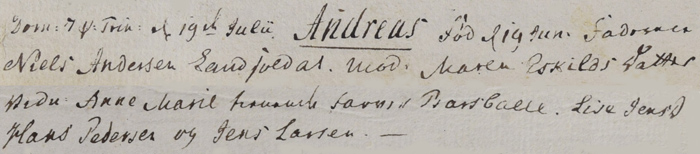 Dom: 7 p. Trin: d 19de Julii Andreas Fød d 19 Jun: Faderen
Niels Andersen Landsoldat. Mod: Maren Eskilds Datter
Anne Marie Barsballe. Lise Jens D
Hans Pedersen og Jens Larsen. —